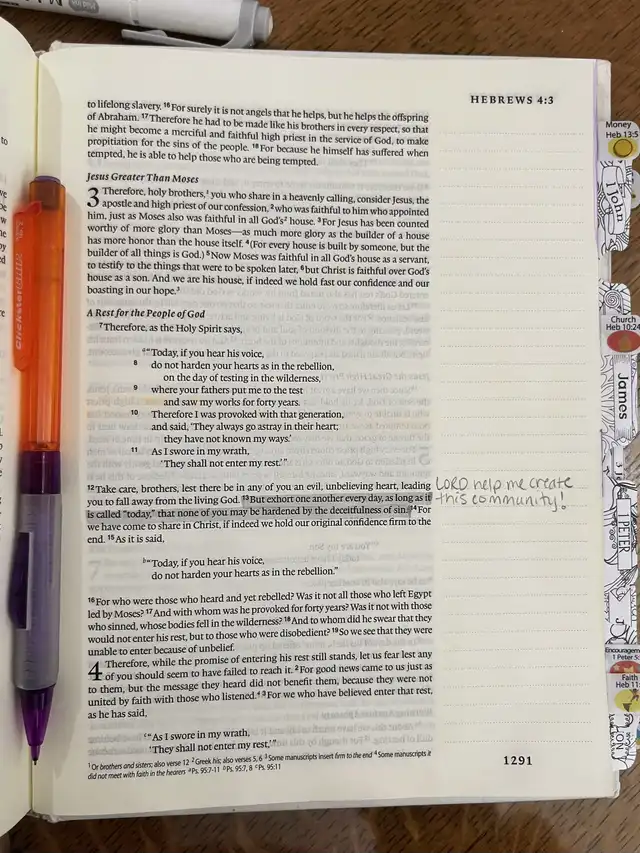 HEBREWS 4:3
to lifelong slavery. 16 For surely it is not angels that he helps, but he helps the offspring
of Abraham. 17 Therefore he had to be made like his brothers in every respect, so that
he might become a merciful and faithful high priest in the service of God, to make
propitiation for the sins of the people. 18 For because he himself has suffered when
tempted, he is able to help those who are being tempted.
Jesus Greater Than Moses
3 Therefore, holy brothers,1 you who share in a heavenly calling, consider Jesus, the
apostle and high priest of our confession, 2 who was faithful to him who appointed
him, just as Moses also was faithful in all God's2 house. 3 For Jesus has been counted
worthy of more glory than Moses—as much more glory as the builder of a house
has more honor than the house itself. 4 (For every house is built by someone, but the
builder of all things is God.) 5 Now Moses was faithful in all God's house as a servant,
to testify to the things that were to be spoken later, 6 but Christ is faithful over God's
house as a son. And we are his house, if indeed we hold fast our confidence and our
boasting in our hope.3
A Rest for the People of God
7 Therefore, as the Holy Spirit says,
a "Today, if you hear his voice,
8 do not harden your hearts as in the rebellion,
on the day of testing in the wilderness,
9 where your fathers put me to the test
and saw my works for forty years.
10 Therefore I was provoked with that generation,
and said, 'They always go astray in their heart;
they have not known my ways.'
11 As I swore in my wrath,
'They shall not enter my rest.'"
12 Take care, brothers, lest there be in any of you an evil, unbelieving heart, leading
you to fall away from the living God. 13 But exhort one another every day, as long as it
is called "today," that none of you may be hardened by the deceitfulness of sin. 14 For
we have come to share in Christ, if indeed we hold our original confidence firm to the
end. 15 As it is said,
LORD help me create
this community!
b "Today, if you hear his voice,
do not harden your hearts as in the rebellion."
16 For who were those who heard and yet rebelled? Was it not all those who left Egypt
led by Moses? 17 And with whom was he provoked for forty years? Was it not with those
who sinned, whose bodies fell in the wilderness? 18 And to whom did he swear that they
would not enter his rest, but to those who were disobedient? 19 So we see that they were
unable to enter because of unbelief.
4 Therefore, while the promise of entering his rest still stands, let us fear lest any
of you should seem to have failed to reach it. 2 For good news came to us just as
to them, but the message they heard did not benefit them, because they were not
united by faith with those who listened.4 3 For we who have believed enter that rest,
as he has said,
c "As I swore in my wrath,
'They shall not enter my rest,'"
1 Or brothers and sisters; also verse 12 2 Greek his; also verses 5, 6 3 Some manuscripts insert firm to the end 4 Some manuscripts it
did not meet with faith in the hearers a Ps. 95:7-11 b Ps. 95:7, 8 c Ps. 95:11
1291
Money
Heb 13:5
1 John
Church
Heb 10:24
James
1 PETER
Encouragem
1 Peter 5:
Faith
Heb 11: